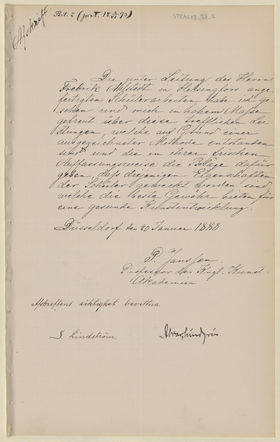 Afskrift.
Die unter Leitung des Herrn
Fredrik Ahlstedt in Helsingfors ange-
fertigten Schülerarbeiten habe ich ge-
sehen und mich in hohem Masse
gefreut über diese trefflichen Lei-
stungen, welche auf Grund einer
ausgezeichneten Methode entstanden
sind und die in ihrer frischen
Auffassungsweise die Belege dafür
geben, dass diejenigen Eigenschaften
der Schüler geweckt worden sind,
welche die beste Gewähr bieten für
eine gesunde Kunstentwicklung.
Düsseldorf den 20 Januar 1893
P. Janssen.
Professor der Kgl. Kunst-
Akademie
Afskriftens riktighet bevittna:
Lindström